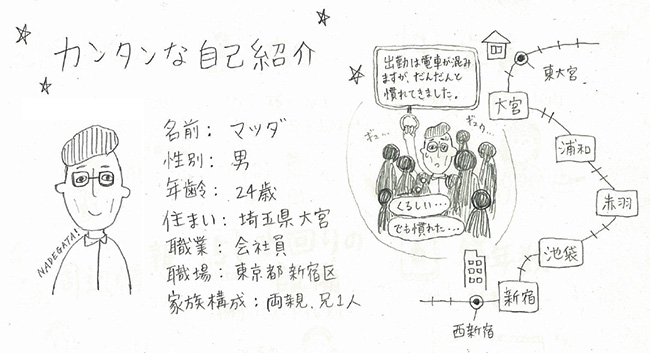 カンタンな自己紹介
名前： マツダ
性別： 男
年齢： 24歳
住まい： 埼玉県大宮
職業： 会社員
職場： 東京都新宿区
家族構成： 両親、兄1人
NADEGATA!
出勤は電車が混み
ますが、だんだんと
慣れてきました。
ギュ…
ギュウ…
くるしい…
でも慣れた…
東大宮
大宮
浦和
赤羽
池袋
新宿
西新宿